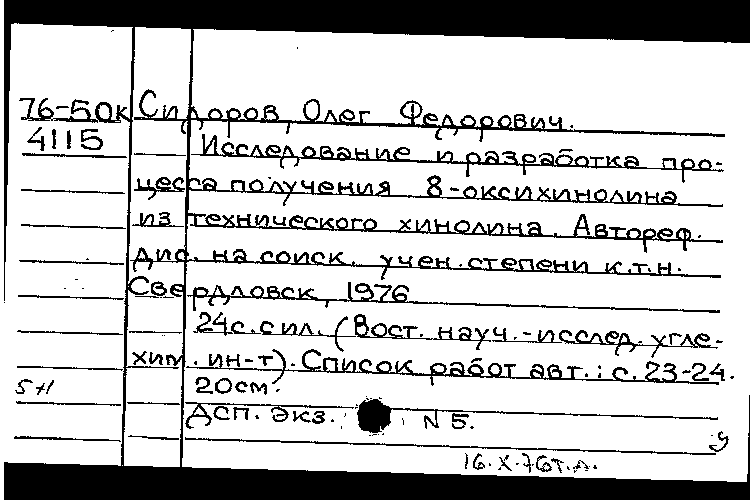 76-50к Сидоров, Олег Федорович.
4115 Исследование и разработка про-
цесса получения 8-оксихинолина
из технического хинолина. Автореф.
дис. на соиск. учен. степени к.т.н.
Свердловск, 1976
24с. с ил. (Вост. науч.-исслед. угле-
хим. ин-т). Список работ авт.: с. 23-24.
20см.
Дсп. Экз. N 5.
16.X.76г.